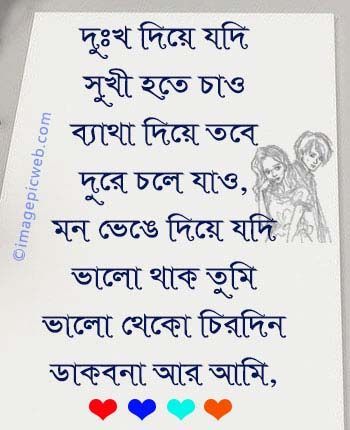 দুঃখ দিয়ে যদি
সুখী হতে চাও
ব্যাথা দিয়ে তবে
দুরে চলে যাও,
মন ভেঙে দিয়ে যদি
ভালো থাক তুমি
ভালো থেকো চিরদিন
ডাকবনা আর আমি,
©imagepicweb.com